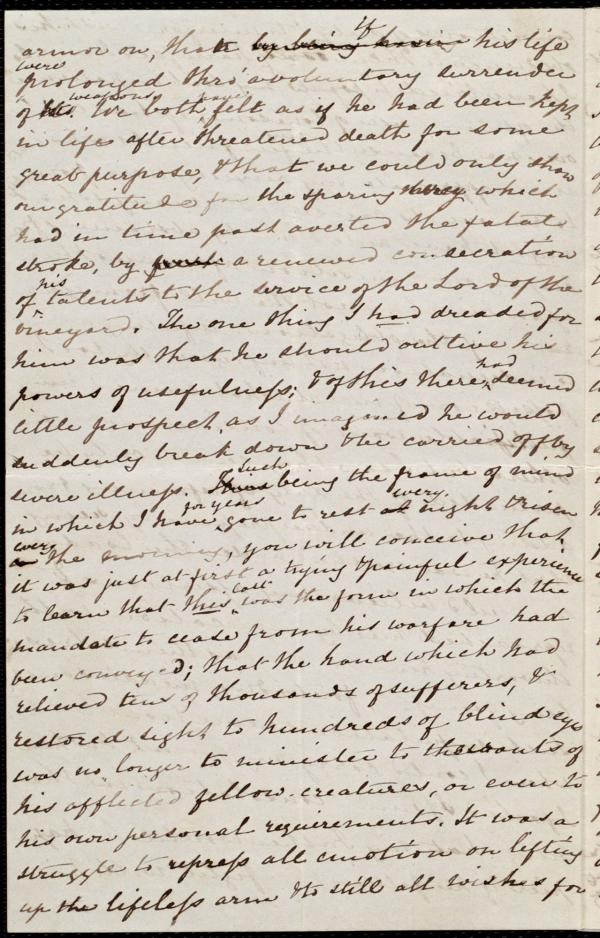 armor on, than by being having if his life
were prolonged thro' a voluntary surrender
of his weapons. We both have felt as if he had been kept
in life after threatened death for some
great purpose, & that we could only show
our gratitude for the sparing mercy which
had in time past averted the fatal
stroke, by a renewed consecration
of his talents to the service of the Lord of the
vineyard. The one thing I had dreaded for
him was that he should outlive his
powers of usefulness; & of this there had seemed
little prospect, as I imagined he would
suddenly break down & be carried off by
severe illness. Such being the frame of mind
in which I have for years gone to rest at every night & risen
every in the morning, you will conceive that
it was just at first a trying & painful experience
to learn that this call was the form in which the
mandate to cease from his warfare had
been conveyed; that the hand which had
relieved tens of thousands of sufferers, &
restored sight to hundreds of blind eyes
was no longer to minister to the wants of
his afflicted fellow-creatures, or even to
his own personal requirements. It was a
struggle to repress all emotion on lifting
up the lifeless arm & to still all wishes for